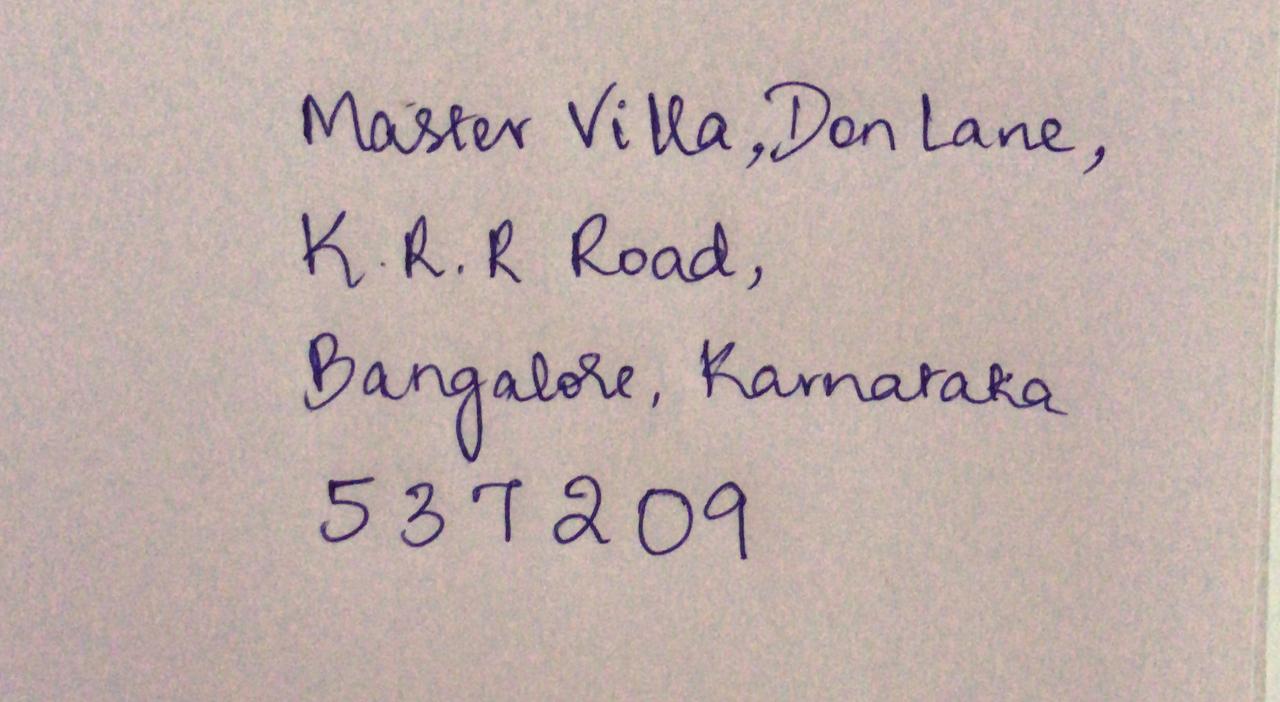 Master Villa, Don Lane,
K.R.R Road,
Bangalore, Karnataka
537209